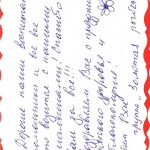 Дорогие наши воспитат
помощники и все все
то возится с нашими
мальчишками! Спасибо
Вам за все!!!
оздравляем Вас с праздни
много здоровья и
благополучия!
Вас
группа „Золотая рыбк